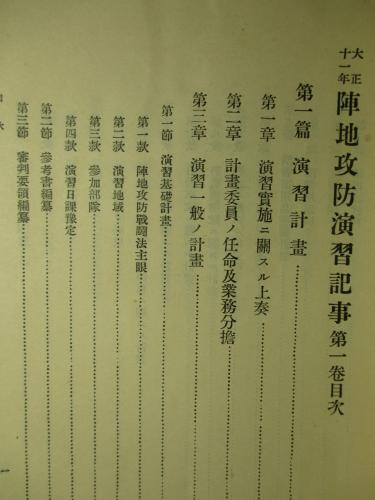 大正十一年 陣地攻防演習記事 第一卷目次
第一篇 演習計畫
第一章 演習實施ニ關スル上奏
第二章 計畫委員ノ任命及業務分擔
第三章 演習一般ノ計畫
第一節 演習基礎計畫
第一款 陣地攻防戰鬪法主眼
第二款 演習地域
第三款 參加部隊
第四款 演習日課豫定
第二節 參考書編纂
第三節 審判要領編纂
一